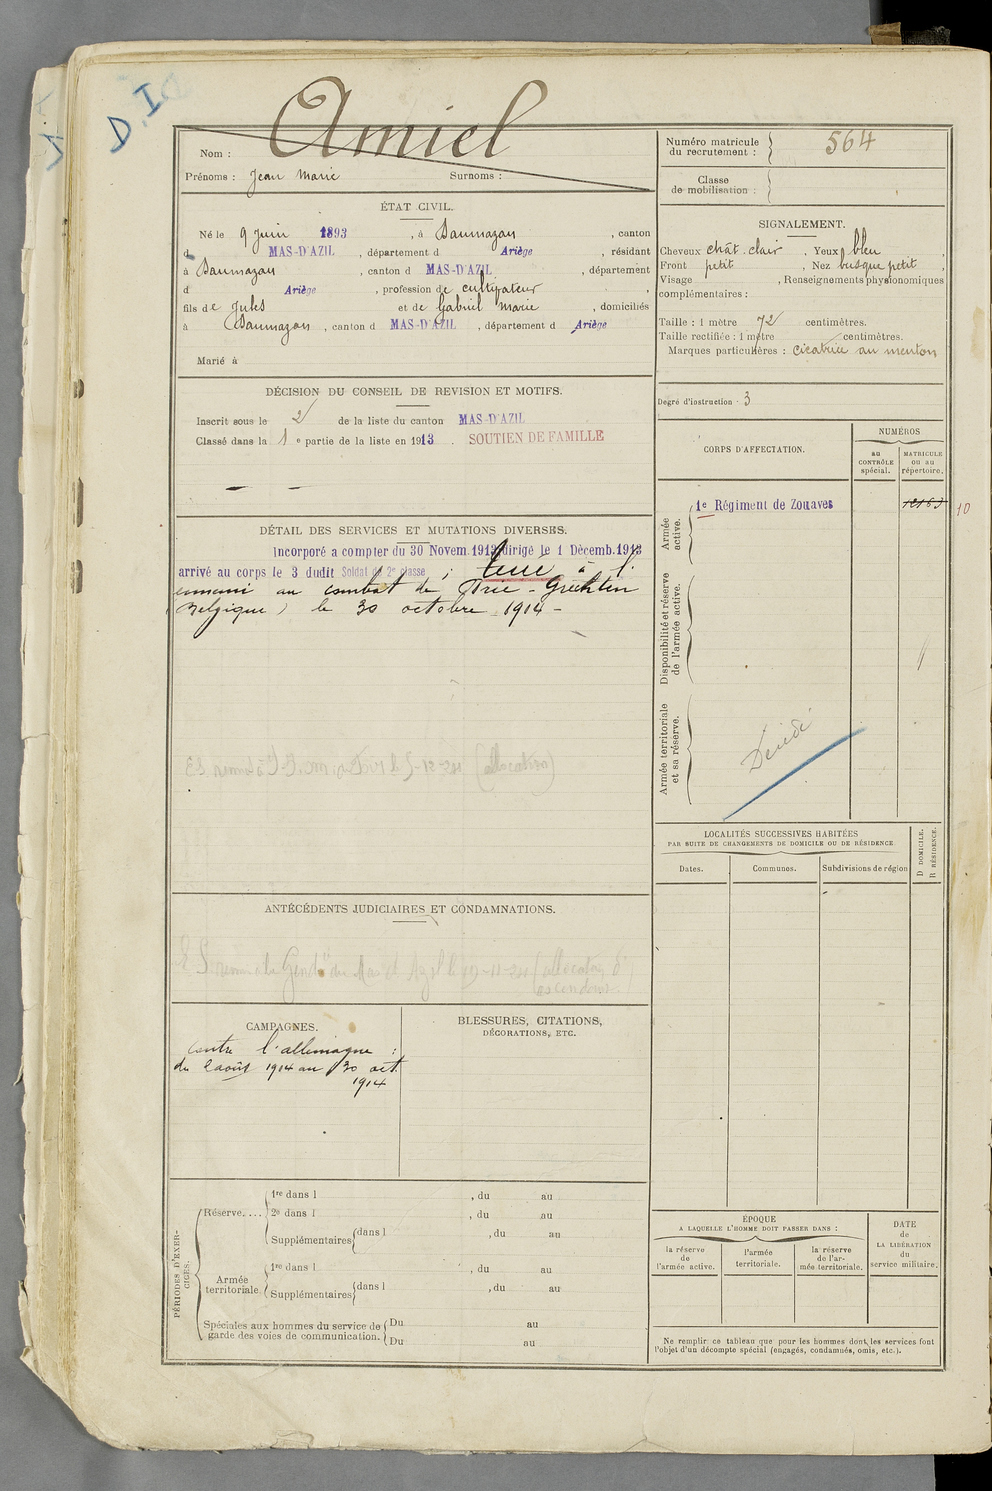 D.I
Amiel
Nom :
Prénoms : Jean Marie Surnoms :
Numéro matricule du recrutement : 564
Classe de mobilisation :
ÉTAT CIVIL.
Né le 9 Juin 1893, à Daumazan, canton
d MAS-D'AZIL, département d Ariège, résidant
à Daumazan, canton d MAS-D'AZIL, département
d Ariège, profession de cultivateur,
fils de Jules et de Gabriel Marie, domiciliés
à Daumazan, canton d MAS-D'AZIL, département d Ariège
Marié à
SIGNALEMENT.
Cheveux chât. clair. Yeux bleu,
Front petit, Nez busqué petit,
Visage , Renseignements physionomiques
complémentaires :
Taille : 1 mètre 72 centimètres.
Taille rectifiée : 1 mètre centimètres.
Marques particulières : cicatrice au menton
Degré d'instruction 3
DÉCISION DU CONSEIL DE REVISION ET MOTIFS.
Inscrit sous le 2 de la liste du canton MAS-D'AZIL
Classé dans la 1e partie de la liste en 1913. SOUTIEN DE FAMILLE
DÉTAIL DES SERVICES ET MUTATIONS DIVERSES.
Incorporé a compter du 30 Novem. 1913 dirigé le 1 Décemb. 1913
arrivé au corps le 3 dudit Soldat de 2e classe ; tué à l'
ennemi au combat de
(Belgique) le 30 octobre 1914 -
CORPS D'AFFECTATION.
NUMÉROS
au CONTRÔLE spécial.
MATRICULE ou au répertoire.
Armée active.
1e Régiment de Zouaves 12163
10
Disponibilité et réserve de l'armée active.
Armée territoriale et sa réserve.
Décédé
LOCALITÉS SUCCESSIVES HABITÉES
PAR SUITE DE CHANGEMENTS DE DOMICILE OU DE RÉSIDENCE
Dates. Communes. Subdivisions de région
D DOMICILE.
R RÉSIDENCE.
ANTÉCÉDENTS JUDICIAIRES ET CONDAMNATIONS.
CAMPAGNES.
contre l'allemagne :
du 2 août 1914 au 30 oct
1914
BLESSURES, CITATIONS,
DÉCORATIONS, ETC.
PÉRIODES D'EXERCICES.
Réserve....
1re dans l , du au
2e dans l , du au
Supplémentaires dans l , du au
Armée territoriale.
1re dans l , du au
Supplémentaires dans l , du au
Spéciales aux hommes du service de garde des voies de communication.
Du au
Du au
ÉPOQUE
A LAQUELLE L'HOMME DOIT PASSER DANS :
la réserve de l'armée active.
l'armée territoriale.
la réserve de l'armée territoriale.
DATE de LA LIBÉRATION du service militaire.
Ne remplir ce tableau que pour les hommes dont les services font
l'objet d'un décompte spécial (engagés, condamnés, omis, etc.).